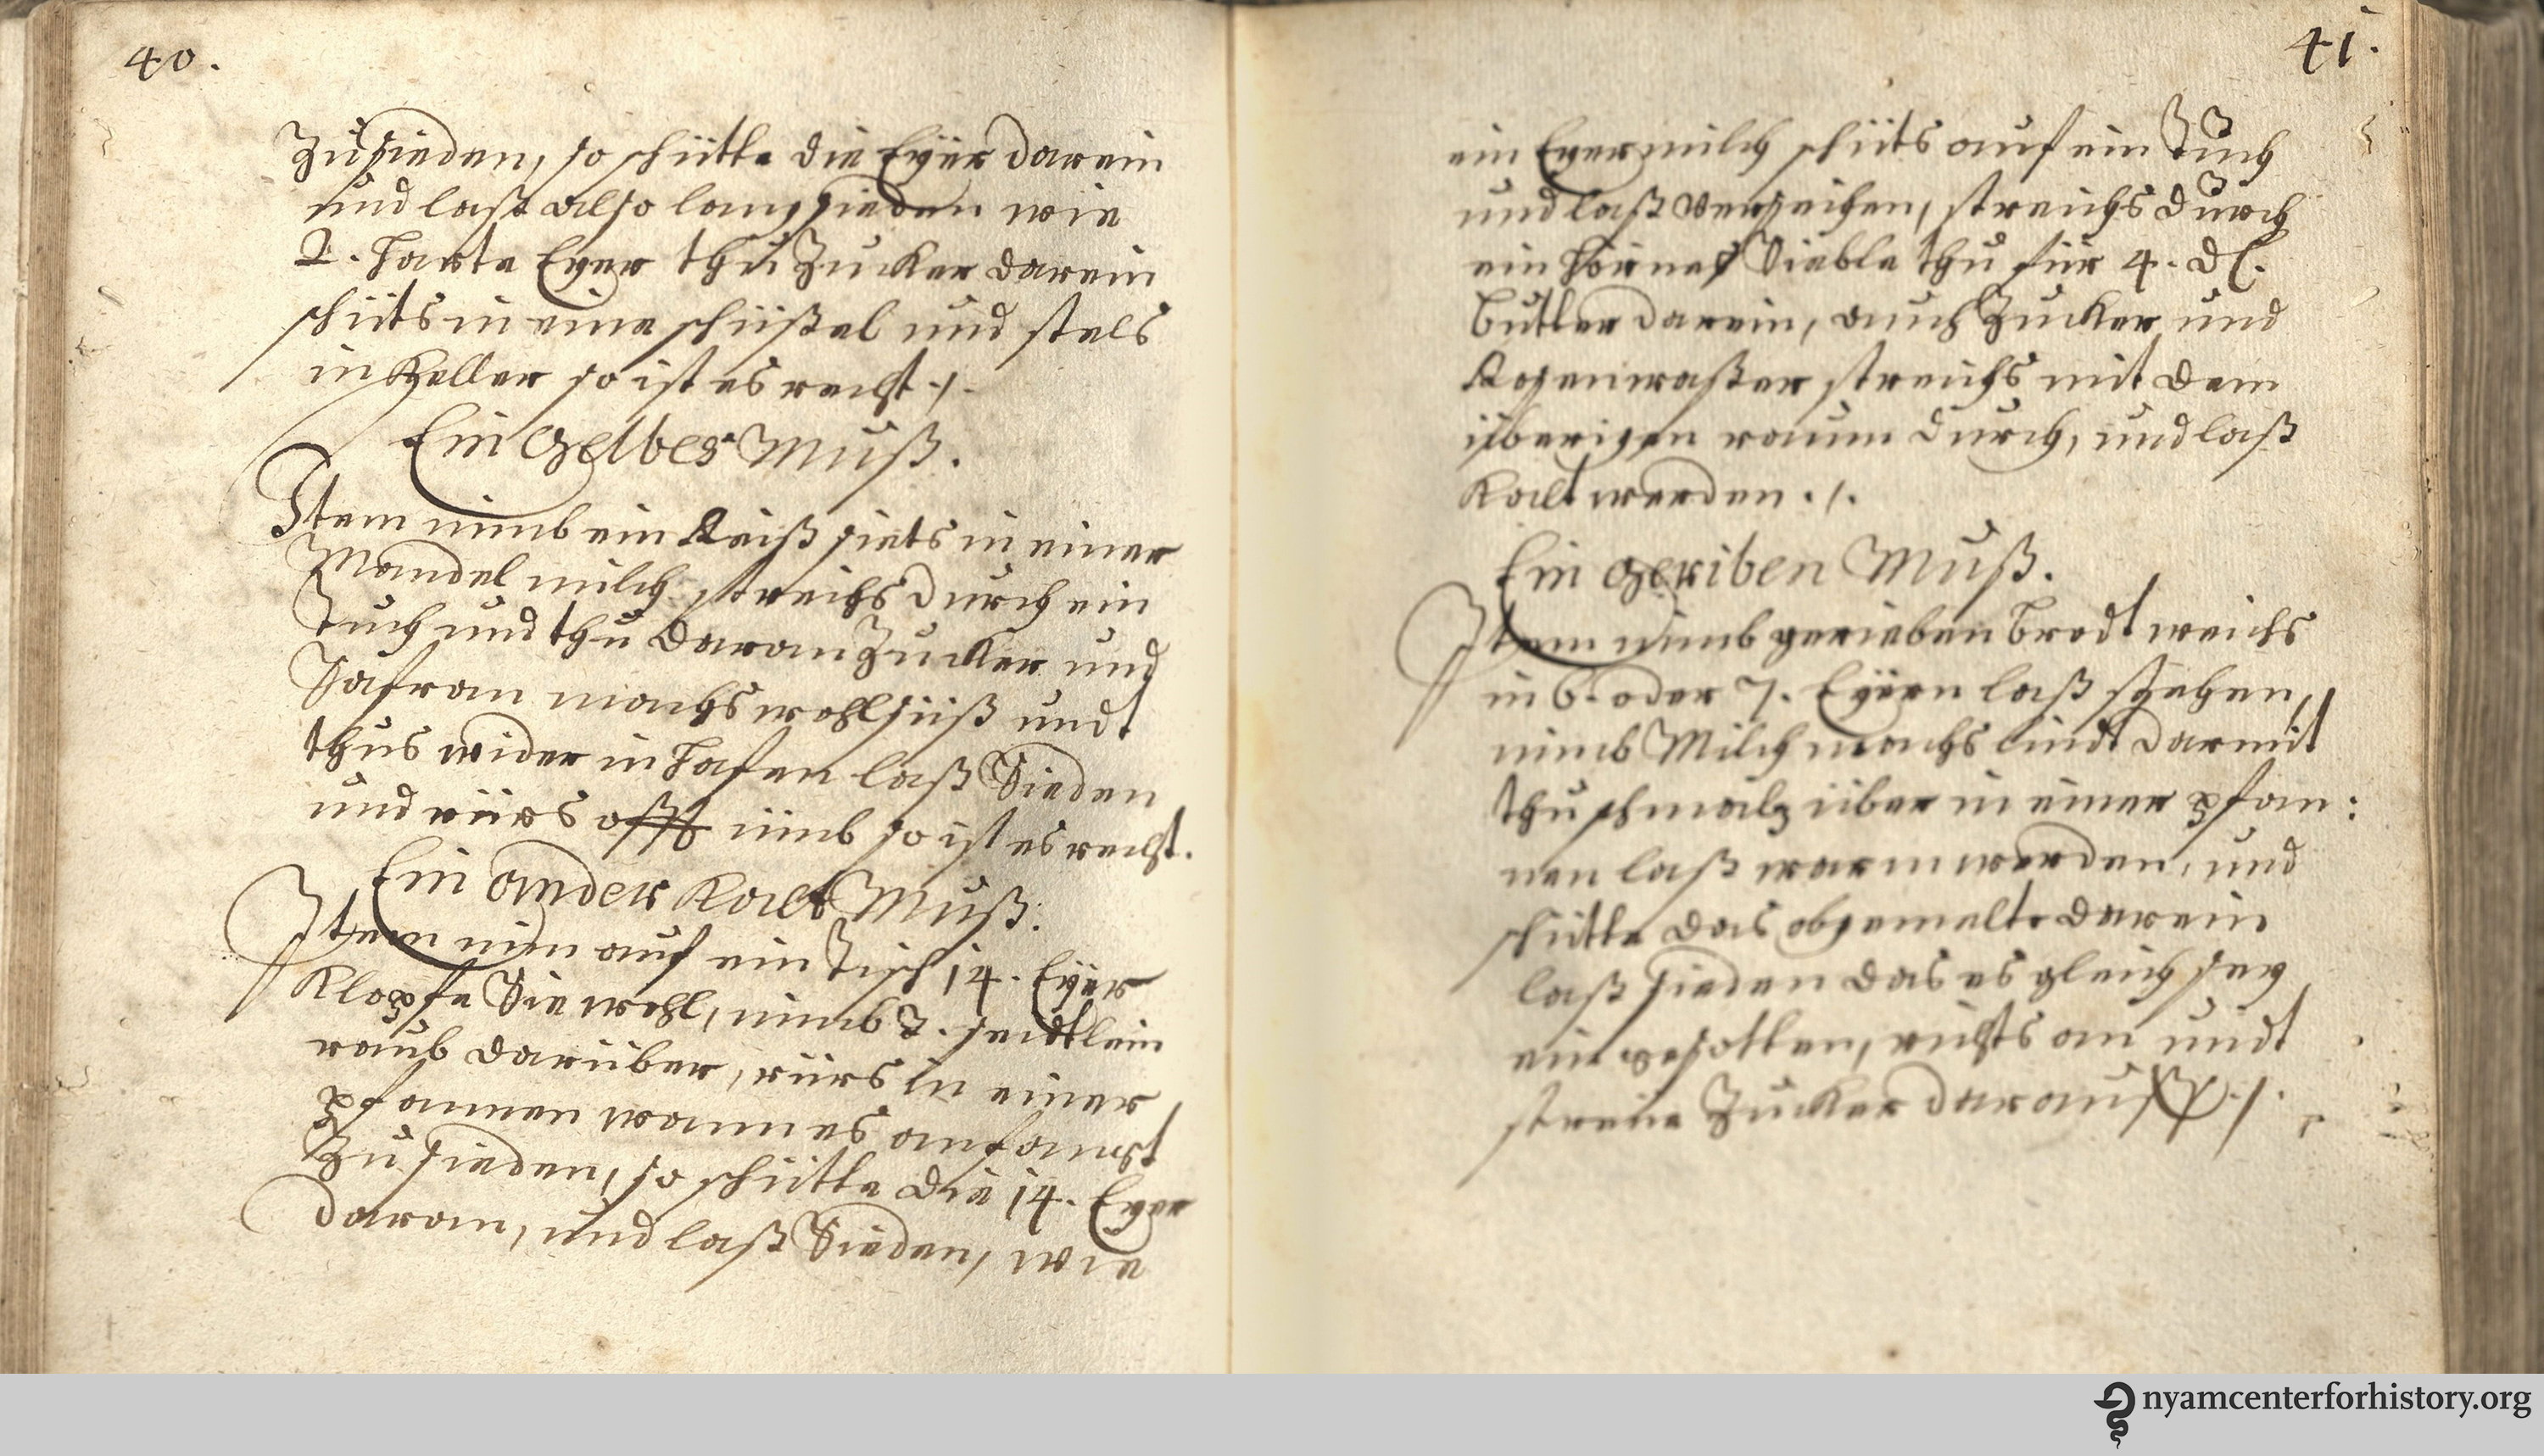 40.
Zusieden, so schütte die Eÿer darein
und laß also lang sieden wie
2. harte Eyer thu Zucker darein
schüts in eine schüßel und stels
in Keller so ist es recht ./.
Ein Gelbes Muß.
Item nimb ein Reiß siets in einer
Mandel milch streichs durch ein
Tuch und thu daran Zucker und
Safran machs wohl süß undt
thus wider in Hafen laß Sieden
und rürs offt umb so ist es recht.
Ein ander Kalt Muß.
Item nim auf ein Tisch 14. Eÿer
Klopfe Sie wohl, nimb 2. seidtlein
raub darüber, rürs in einer
pfannen wann es anfangt
Zu sieden, so schütte die 14. Eyer
daran, und laß Sieden, wie
41.
ein Eyermilch schüts auf ein Tuch
und laß verseihen, streichs durch
ein härnes Sieble thu für 4. dl.
Butter darein, auch Zucker und
Rosenwaßer streichs mit dem
überigen raum durch, und laß
Kalt werden ./.
Ein geriben Muß.
Item nimb gerieben Brodt weichs
in 6. oder 7. Eÿern laß stehen,
nimb Milch machs lindt darmit
thu schmalz über in einer pfan:
nen laß warm werden, und
schütte das obgemelte darein
laß sieden das es gleich sey
ein gesotten, richts an undt
streue Zucker darauf ./.
nyamcenterforhistory.org